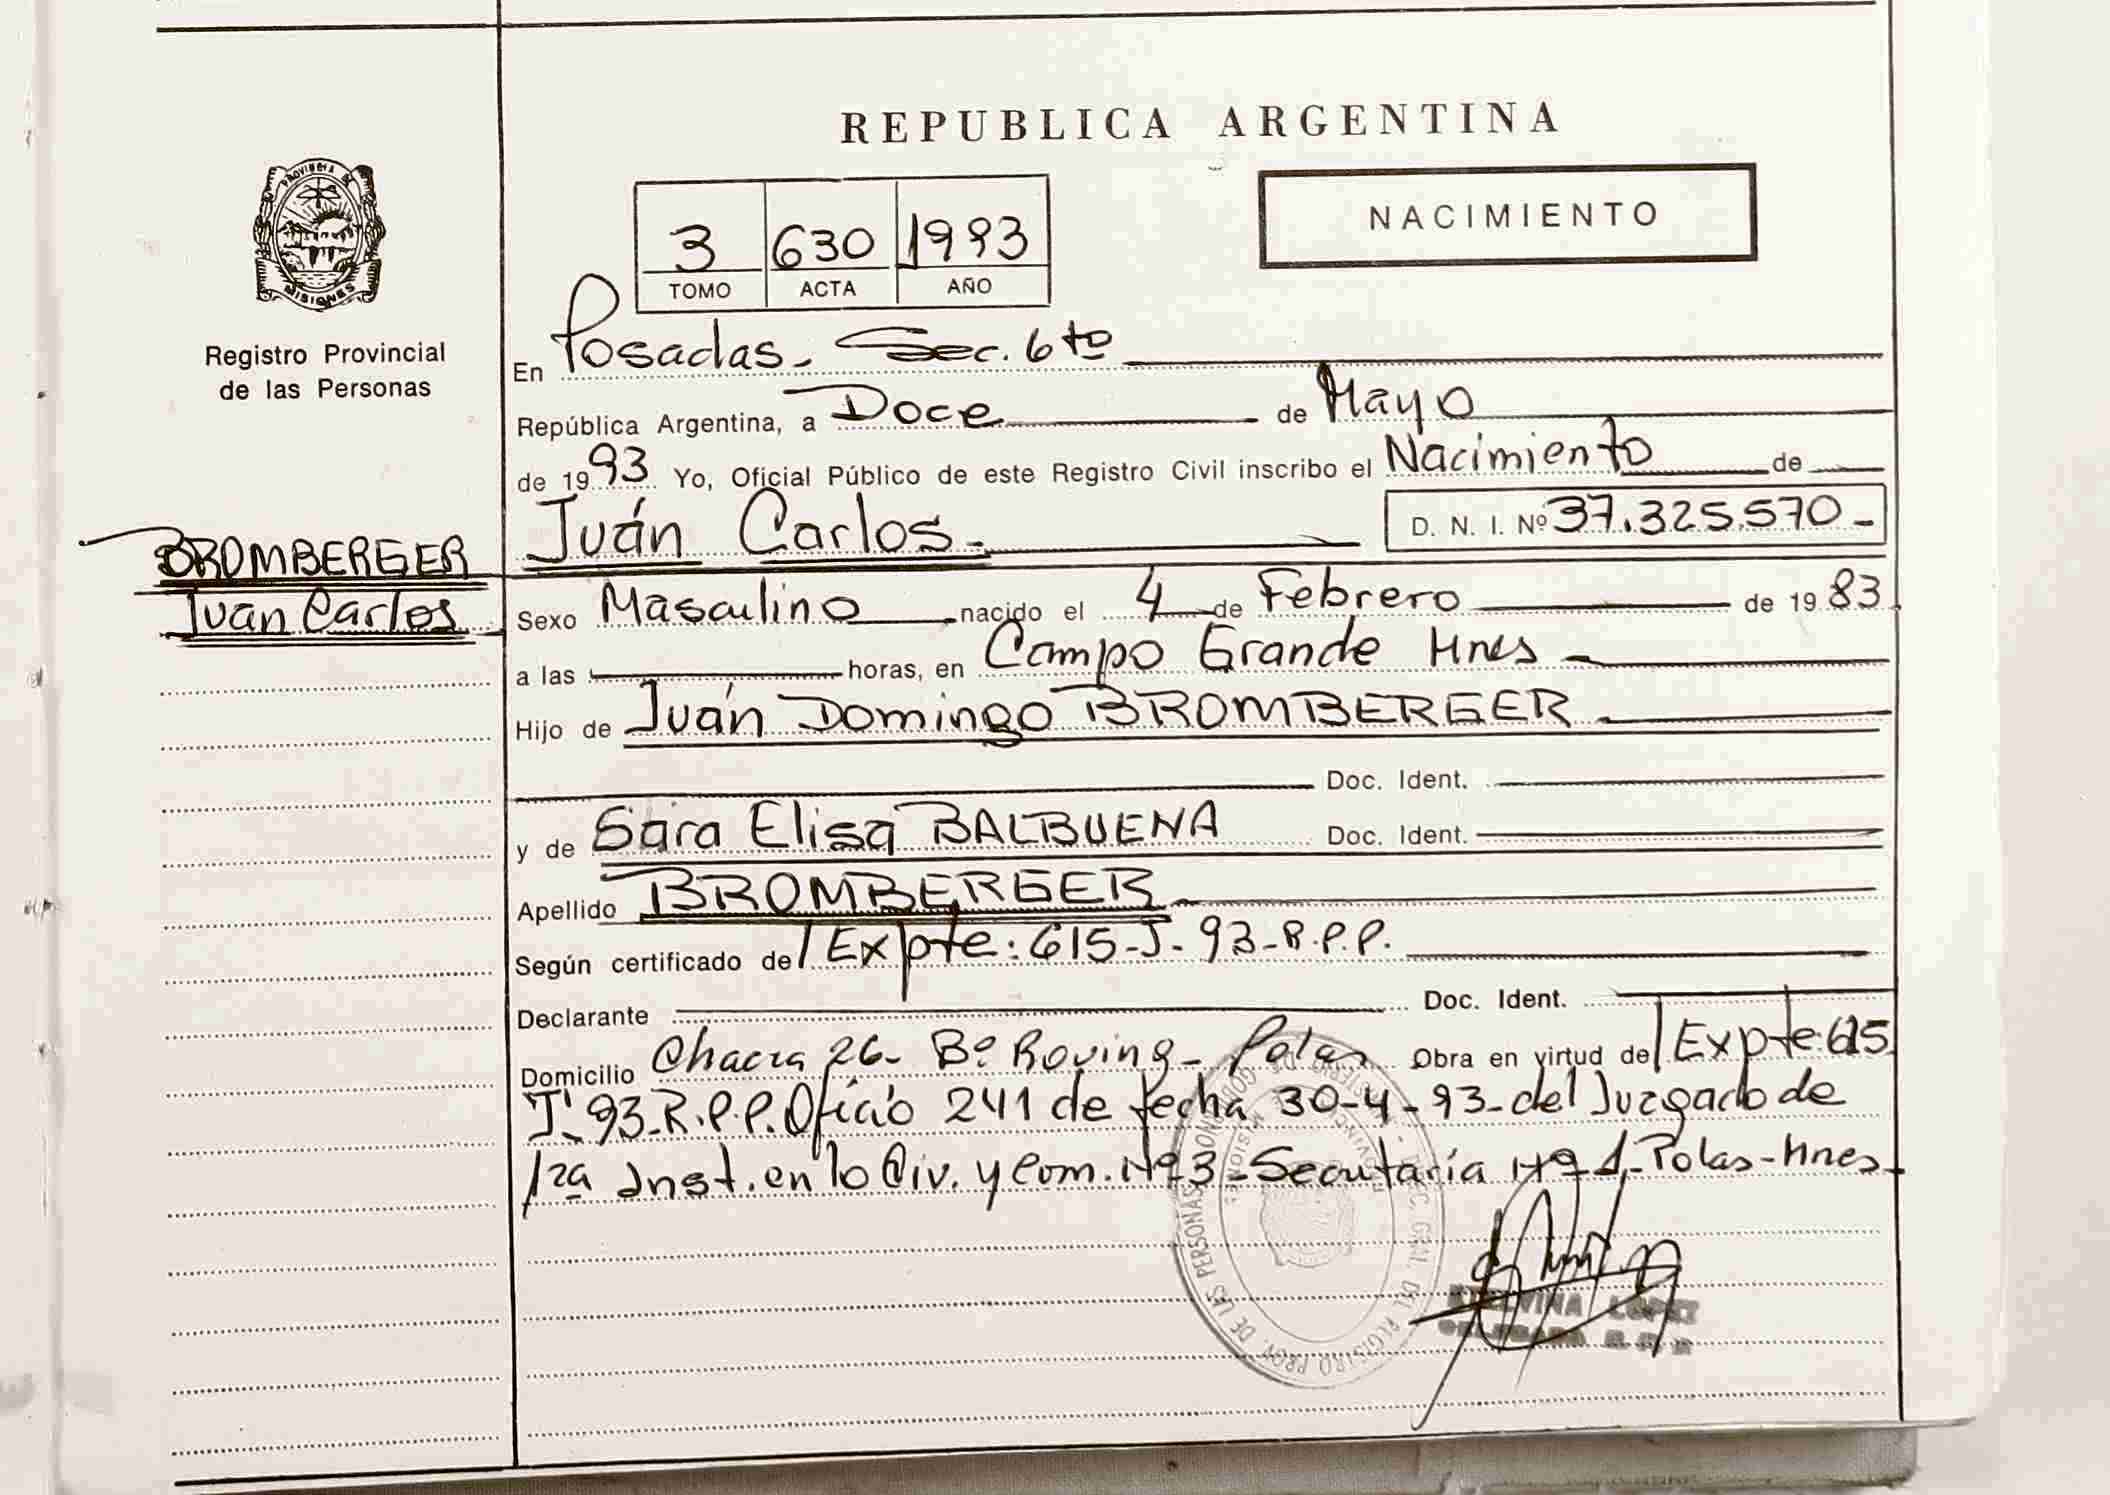 REPUBLICA ARGENTINA
NACIMIENTO
3 630 1993
TOMO ACTA AÑO
PROVINCIA DE MISIONES
Registro Provincial
de las Personas
En Posadas - Sec. 6to
República Argentina, a Doce de Mayo
de 1993 Yo, Oficial Público de este Registro Civil inscribo el Nacimiento de
Juán Carlos.- D. N. I. Nº 37.325.570-
BROMBERGER
Juan Carlos
Sexo Masculino nacido el 4 de Febrero de 1983
a las horas, en Campo Grande Mnes
Hijo de Juán Domingo BROMBERGER
Doc. Ident.
y de Sara Elisa BALBUENA Doc. Ident.
Apellido BROMBERGER
Según certificado de/ Expte: 615-J-93-R.P.P.
Declarante Doc. Ident.
Domicilio Chacra 26- Bº Roving- Pdas Obra en virtud de/ Expte: 615
J-93-R.P.P. Oficio 241 de fecha 30-4-93- del Juzgado de
1ra Inst. en lo Civ. y Com. Nº 3- Secretaría Nº 1- Pdas- Mnes-
DEL REGISTRO PROV. DE LAS PERSONAS
LOPEZ